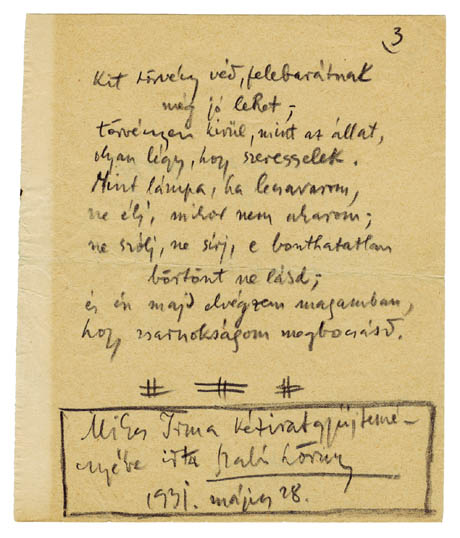 3
Kit törvény véd, felebarátnak
még jó lehet;
törvényen kívül, mint az állat,
olyan légy, hogy szeresselek.
Mint lámpa, ha lecsavarom,
ne élj, mikor nem akarom;
ne szólj, ne sírj, e bonthatatlan
börtönt ne lásd;
és én majd elvégzem magamban,
hogy zsarnokságom megbocsásd.
Mikes Irma kéziratgyűjtemé-
nyébe írta Szabó Lőrinc
1931. május 28.